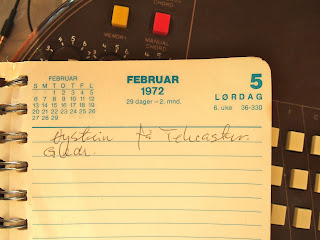 MEMORY
MANUAL
CHORD
FEBRUAR
S M T O T F L
1 2 3 4 5
6 7 8 9 10 11 12
13 14 15 16 17 18 19
20 21 22 23 24 25 26
27 28 29
FEBRUAR
1972
29 dager – 2. mnd.
5
LØRDAG
6. uke 36-330
Øystein få Telecaster.